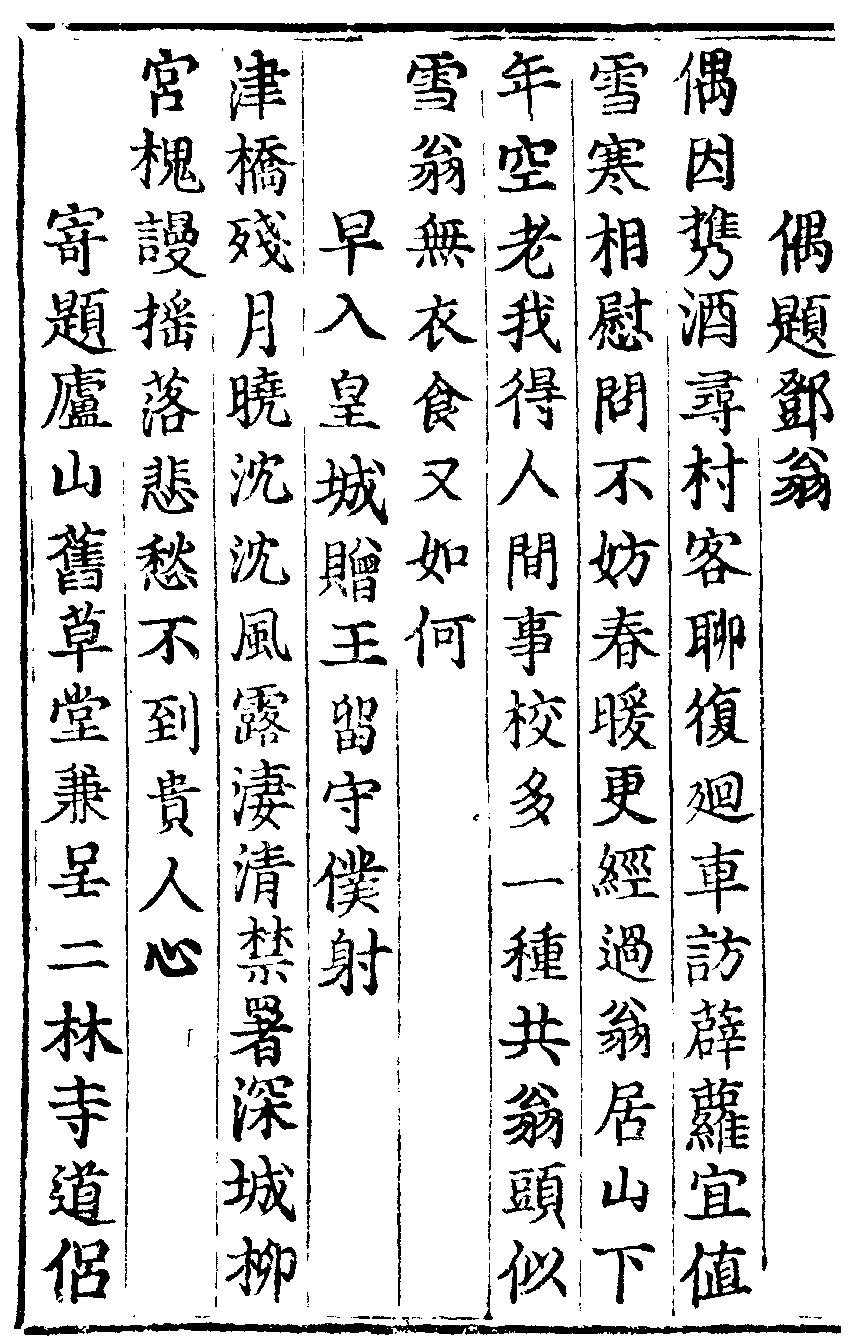 偶題鄧翁
偶因携酒尋村客聊復廻車訪薜蘿宜值
雪寒相慰問不妨春暖更經過翁居山下
年空老我得人間事校多一種共翁頭似
雪翁無衣食又如何
早入皇城贈王留守僕射
津橋殘月曉沈沈風露淒清禁署深城柳
宮槐謾揺落悲愁不到貴人心
寄題廬山舊草堂兼呈二林寺道侶